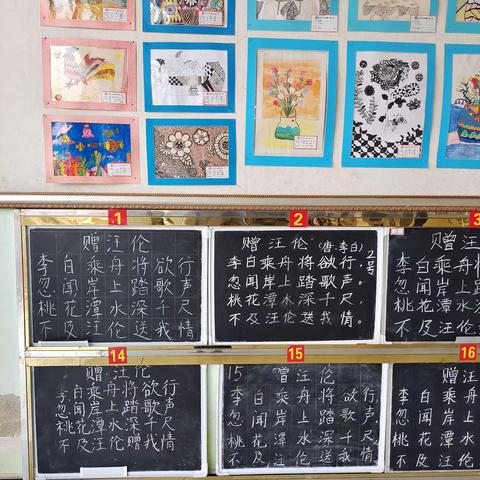 1
赠汪伦
李白乘舟将欲行
忽闻岸上踏歌声
桃花潭水深千尺
不及汪伦送我情
2
赠汪伦(唐.李白)
2号
李白乘舟将欲行,
忽闻岸上踏歌声。
桃花潭水深千尺,
不及汪伦送我情。
3
赠汪
李白乘舟
忽闻岸上
桃花潭水
不及汪伦
14
赠汪伦
李白乘舟将欲行
忽闻岸上踏歌声
桃花潭水深千尺
不及汪伦赠我情
15
15 赠汪伦
李白乘舟将欲行
忽闻岸上踏歌声
桃花潭水深千尺
不及汪伦送我情
16
赠汪
李白乘舟
忽闻岸上
桃花潭水
不及汪伦